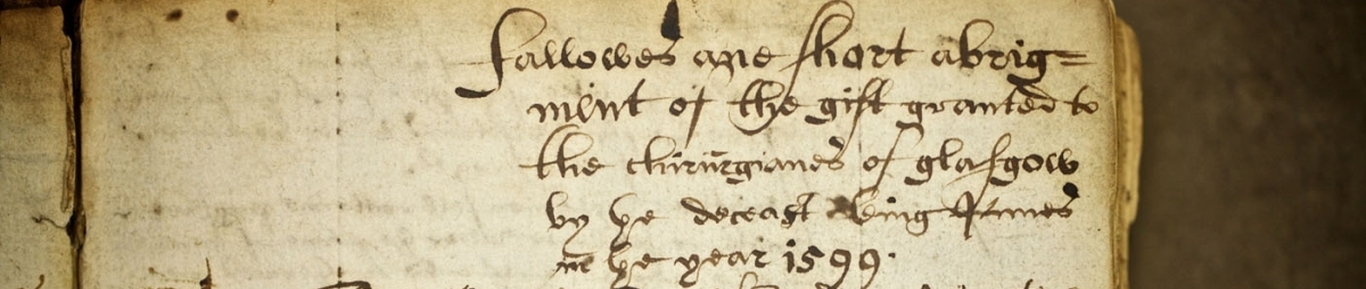 fallowes ane short abrig=
ment of the gift granted to
the chirurgianes of glasgow
by ye deceast King James
in ye year 1599.